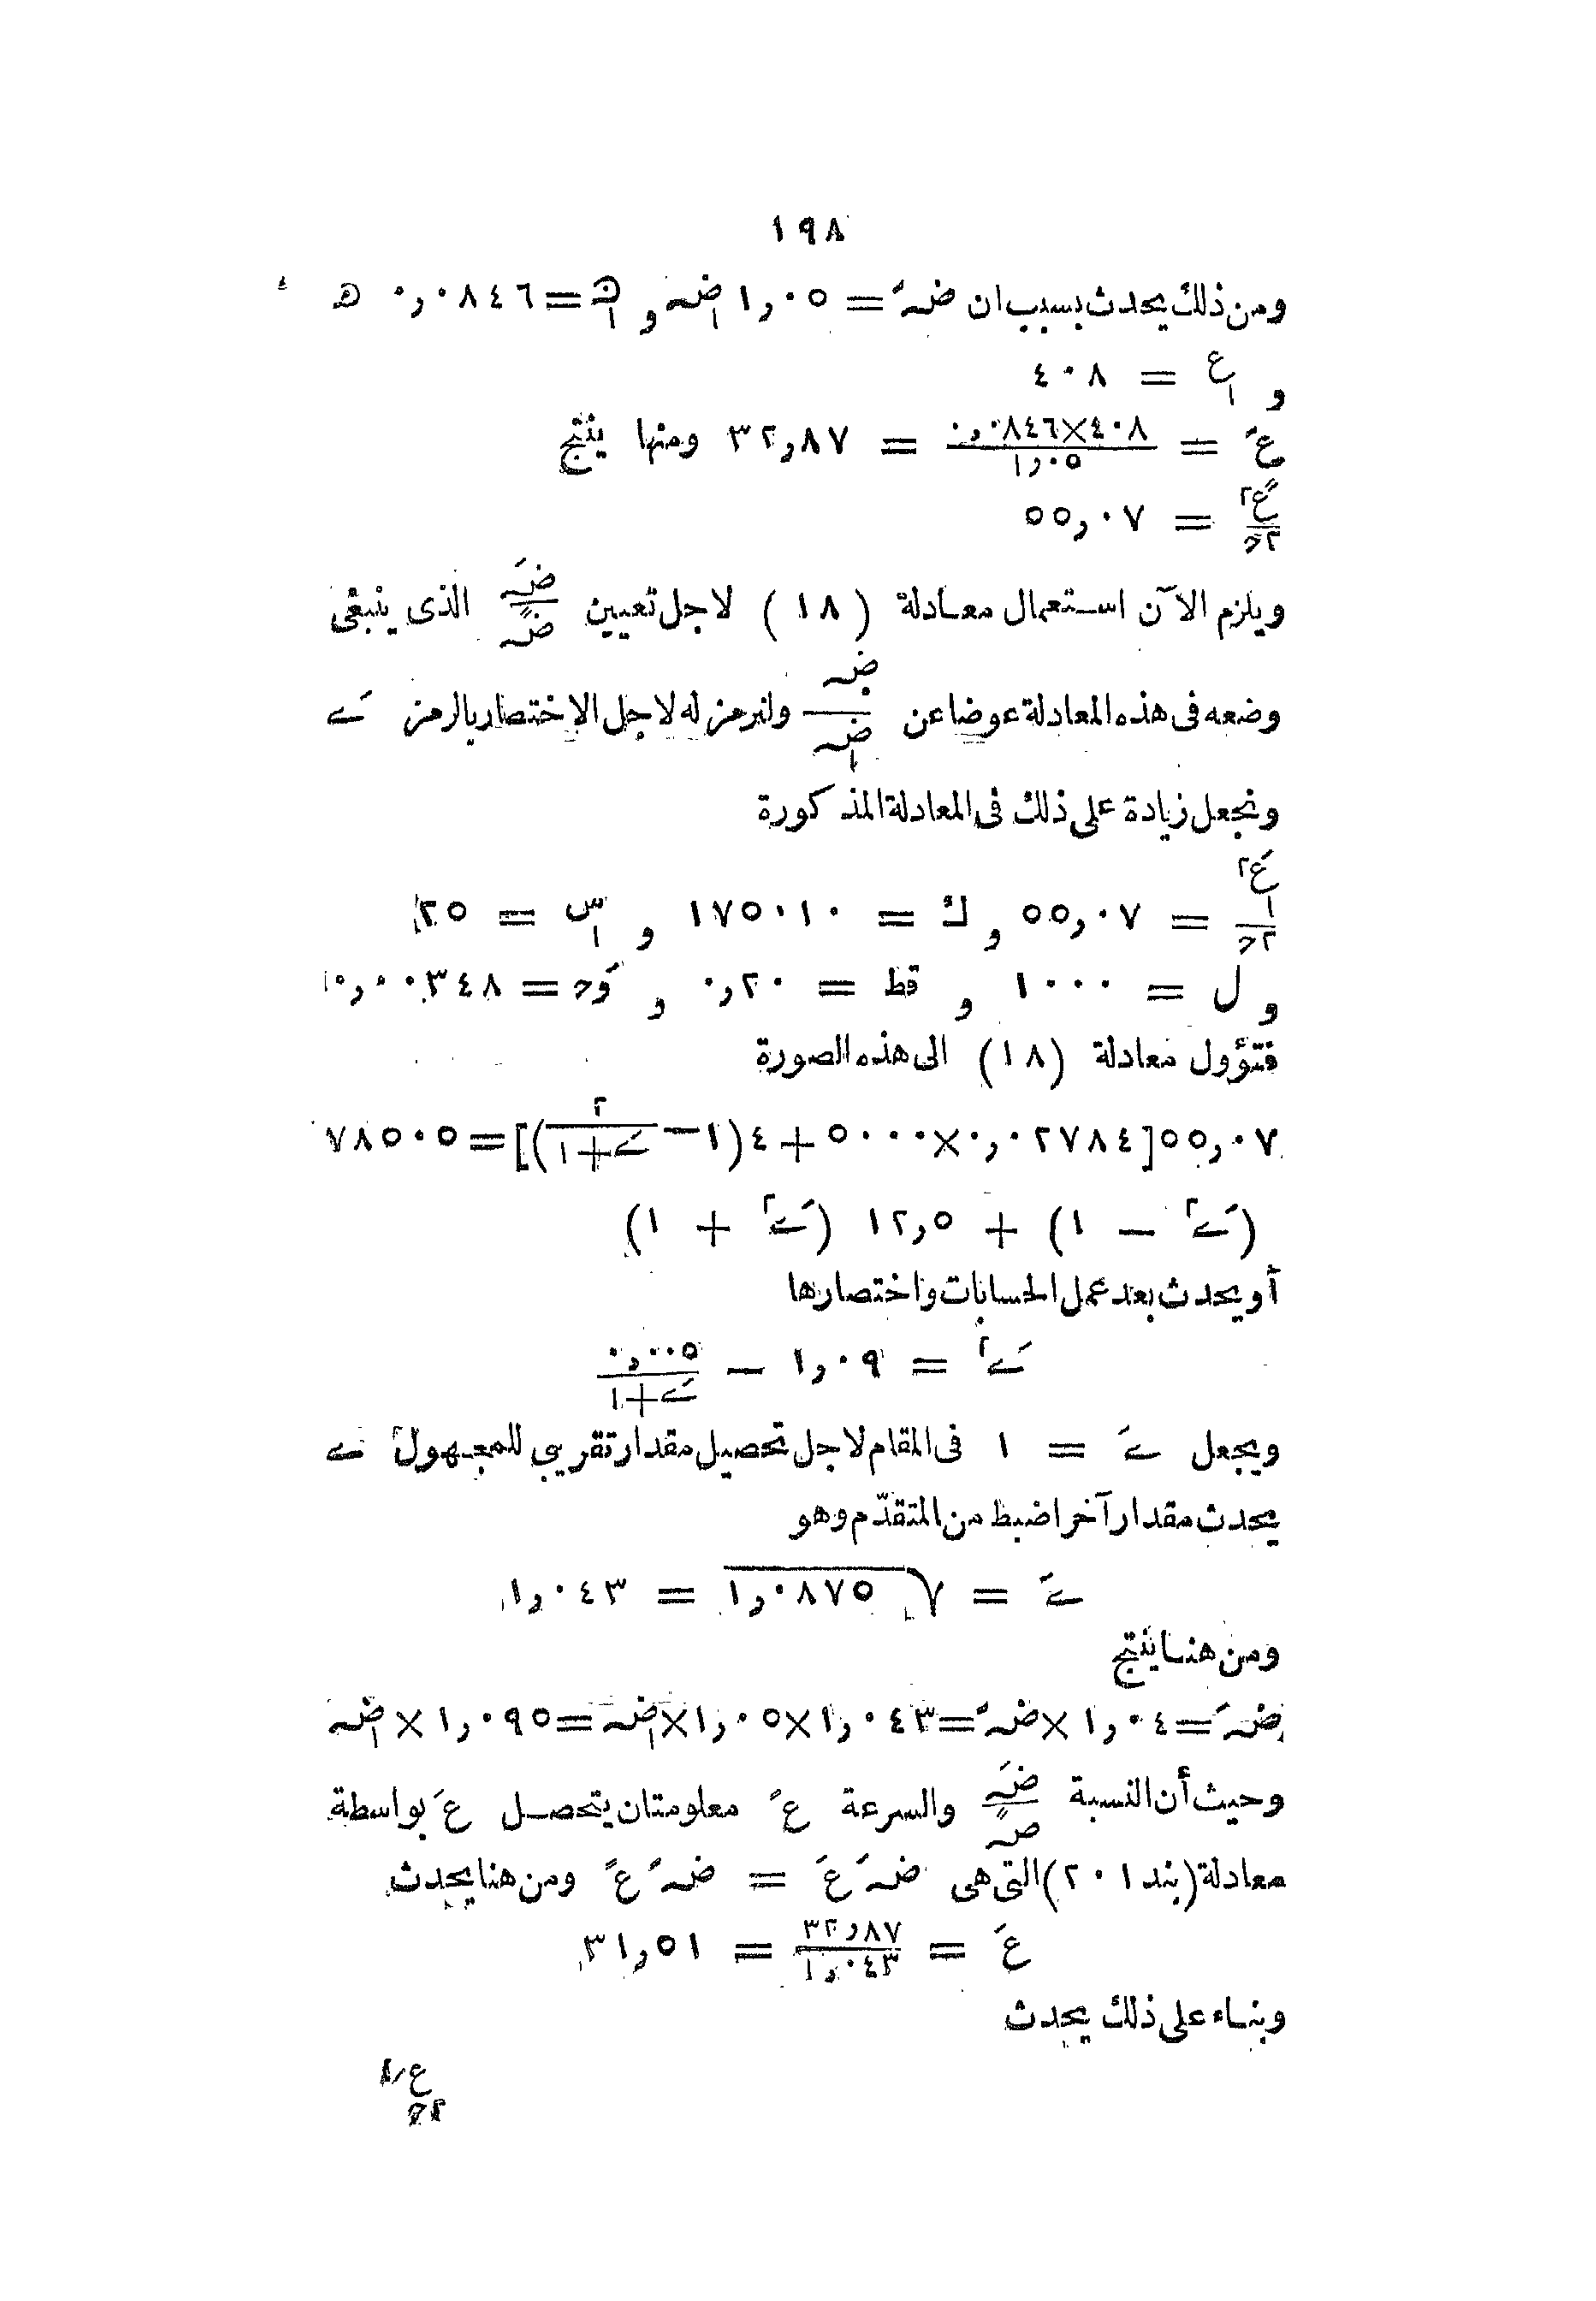 ١٩٨
ومن ذلك يحدث بسبب ان ضہً = ١٫٠٥ ضہ١ و ھ١ = ٠٫٠٨٤٦ ھ
و ع١ = ٤٠٨
عً = ٤٠٨×٠٫٠٨٤٦ / ١٫٠٥ = ٣٢٫٨٧ ومنها ينتج
عً٢ / ٢ح = ٥٥٫٠٧
ويلزم الآن استعمال معادلة (١٨) لاجل تعيين ضہَ / ضہً الذى ينبغى
وضعه فى هذه المعادلة عوضا عن ضہ / ضہ١ ولنرمز له لاجل الاختصار بالرمز ےَ
ونجعل زيادة على ذلك فى المعادلة المذكورة
عَ٢١ / ٢ح = ٥٥٫٠٧ و ك = ١٧٥٠١٠ و س١ = ٢٥
و ل = ١٠٠٠ و قط = ٠٫٢٠ و وَح = ٠٫٠٠٣٤٨
فتؤول معادلة (١٨) الى هذه الصورة
٥٥٫٠٧[٠٫٠٢٧٨٤×٥٠٠٠+٤(١−٢ / ےَ+١)]=٧٨٥٠٥
(ےَ٢ − ١) + ١٢٫٥ (ےَ٢ + ١)
أو يحدث بعد عمل الحسابات واختصارها
ےَ٢ = ١٫٠٩ − ٠٫٠٠٥ / ےَ+١
ويجعل ےَ = ١ فى المقام لاجل تحصيل مقدار تقريبى للمجهول ے
يحدث مقدار آخر اضبط من المتقدّم وهو
ےَ = √١٫٠٨٧٥ = ١٫٠٤٣
ومن هنا ينتج
ضہَ=١٫٠٤×ضہً=١٫٠٤٣×١٫٠٥×ضہ١=١٫٠٩٥×ضہ١
وحيث أن النسبة ضہَ / ضہً والسرعة عً معلومتان يتحصل عَ بواسطة
معادلة (بند ٢٠١) التى هى ضہَ عَ = ضہً عً ومن هنا يحدث
عَ = ٣٢٫٨٧ / ١٫٠٤٣ = ٣١٫٥١
وبناء على ذلك يحدث